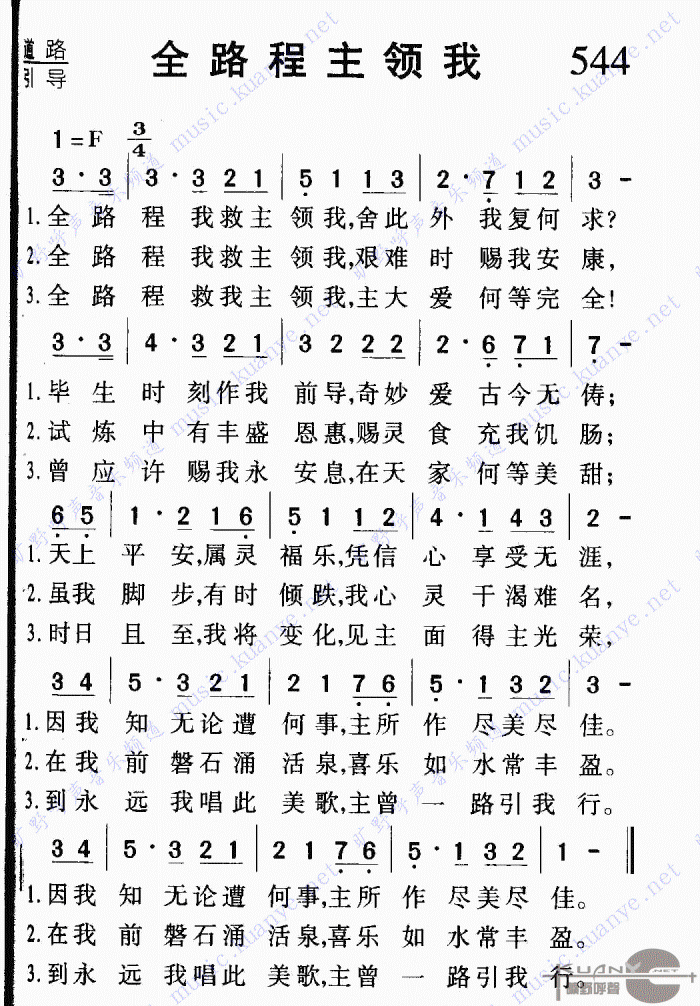 道路
引导
全路程主领我 544
1=F 3/4
3·3 | 3·321 | 5113 | 2·712 | 3 - |
1.全路程我救主领我,舍此外我复何求?
2.全路程我救主领我,艰难时赐我安康,
3.全路程救我主领我,主大爱何等完全!
3·3 | 4·321 | 3222 | 2·671 | 7 -
1.毕生时刻作我前导,奇妙爱古今无俦;
2.试炼中有丰盛恩惠,赐灵食充我饥肠;
3.曾应许赐我永安息,在天家何等美甜;
65 | 1·216 | 5112 | 4·143 | 2 -
1.天上平安,属灵福乐,凭信心享受无涯,
2.虽我脚步,有时倾跌,我心灵干渴难名,
3.时日且至,我将变化,见主面得主光荣,
34 | 5·321 | 2176 | 5·132 | 3 -
1.因我知无论遭何事,主所作尽美尽佳。
2.在我前磐石涌活泉,喜乐如水常丰盈。
3.到永远我唱此美歌,主曾一路引我行。
34 | 5·321 | 2176 | 5·132 | 1 - ‖
1.因我知无论遭何事,主所作尽美尽佳。
2.在我前磐石涌活泉,喜乐如水常丰盈。
3.到永远我唱此美歌,主曾一路引我行。
旷野呼声音乐频道 music.kuanye.net
KUANYE
旷野呼聲